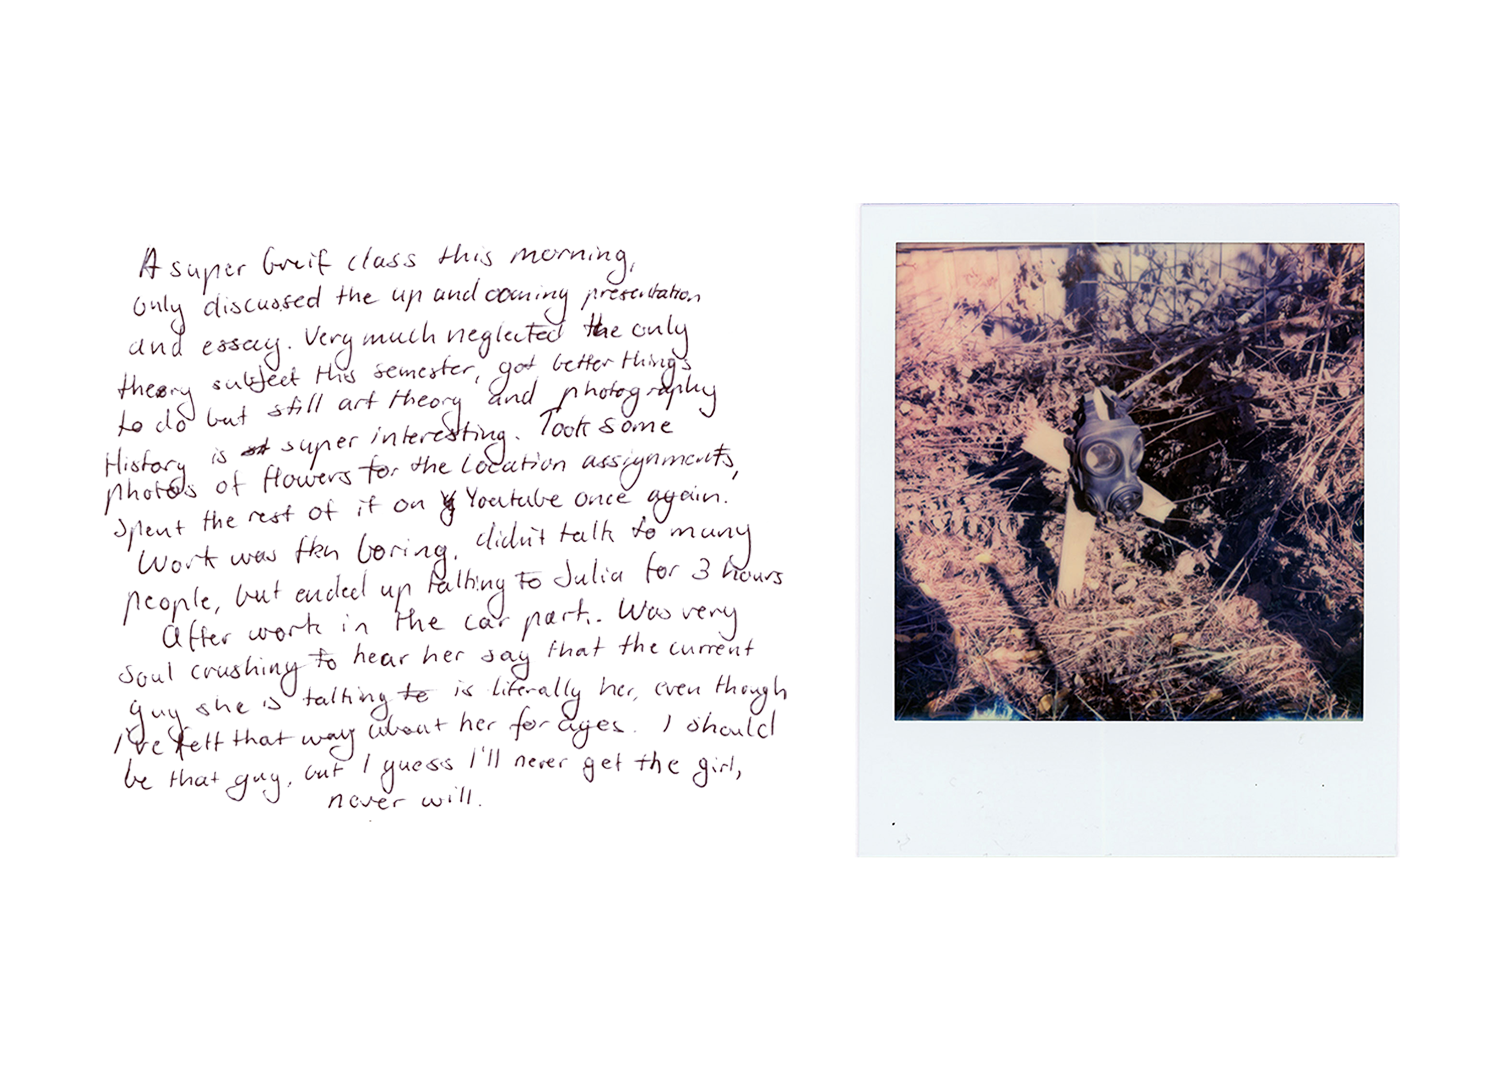 A super breif class this morning,
only discussed the up and coming presentation
and essay. Very much neglected the only
theory subject this semester, got better things
to do but still art theory and photography
History is super interesting. Took some
photos of flowers for the location assignments,
spent the rest of it on Youtube once again.
Work was fkn boring, didn't talk to many
people, but ended up talking to Julia for 3 hours
After work in the car park. Was very
soul crushing to hear her say that the current
guy she is talking to is literally her, even though
I've felt that way about her for ages. I should
be that guy, but I guess I'll never get the girl,
never will.